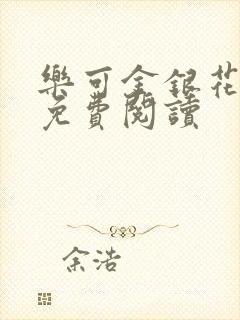 樂可金銀花
免費閱讀
余浩